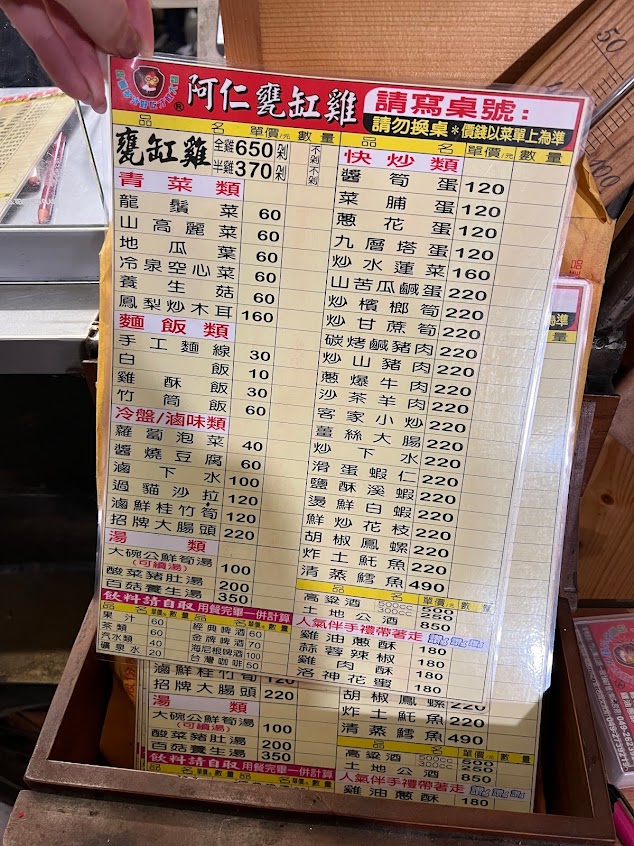 阿仁甕缸雞
®
請寫桌號:
請勿換桌*價錢以菜單上為準
品名 單價/元 數量
甕缸雞 全雞650 剁 不剁
半雞370 剁 不剁
青菜類
龍鬚菜 60
山高麗菜 60
地瓜葉 60
冷泉空心菜 60
養生菇 60
鳳梨炒木耳 160
麵飯類
手工麵線 30
白飯 10
雞酥飯 30
竹筒飯 60
冷盤/滷味類
蘿蔔泡菜 40
醬燒豆腐 60
滷下水 100
過貓沙拉 120
滷鮮桂竹筍 120
招牌大腸頭 220
湯類
大碗公鮮筍湯 100
(可續湯)
酸菜豬肚湯 200
百菇養生湯 350
飲料請自取 用餐完畢一併計算
品名 單價/元 數量 品名 單價/元 數量
果汁 60 經典啤酒 60
茶類 60 金牌啤酒 70
汽水類 40 海尼根啤酒 100
礦泉水 20 台灣咖啡 50
品名 單價/元 數量
快炒類
醬筍蛋 120
菜脯蛋 120
蔥花蛋 120
九層塔蛋 120
炒水蓮菜 160
山苦瓜鹹蛋 220
炒檳榔筍 220
炒甘蔗筍 220
碳烤鹹豬肉 220
炒山豬肉 220
蔥爆牛肉 220
沙茶羊肉 220
客家小炒 220
薑絲大腸 220
炒下水 220
滑蛋蝦仁 220
鹽酥溪蝦 220
燙鮮白蝦 220
鮮炒花枝 220
胡椒鳳螺 220
炸土魠魚 220
清蒸鱈魚 490
品名 單價/元 數量
高粱酒 500cc
300cc
土地公酒 850
人氣伴手禮帶著走
雞油蔥酥 180
蒜蓉辣椒 180
雞肉酥 180
洛神花蜜 180
滷鮮桂竹筍 120
招牌大腸頭 220
湯類
大碗公鮮筍湯 100
(可續湯)
酸菜豬肚湯 200
百菇養生湯 350
飲料請自取 用餐完畢一併計算
胡椒鳳螺 220
炸土魠魚 220
清蒸鱈魚 490
品名 單價/元 數量
高粱酒 500cc
300cc
土地公酒 850
人氣伴手禮帶著走
雞油蔥酥 180
為準
量
50
100